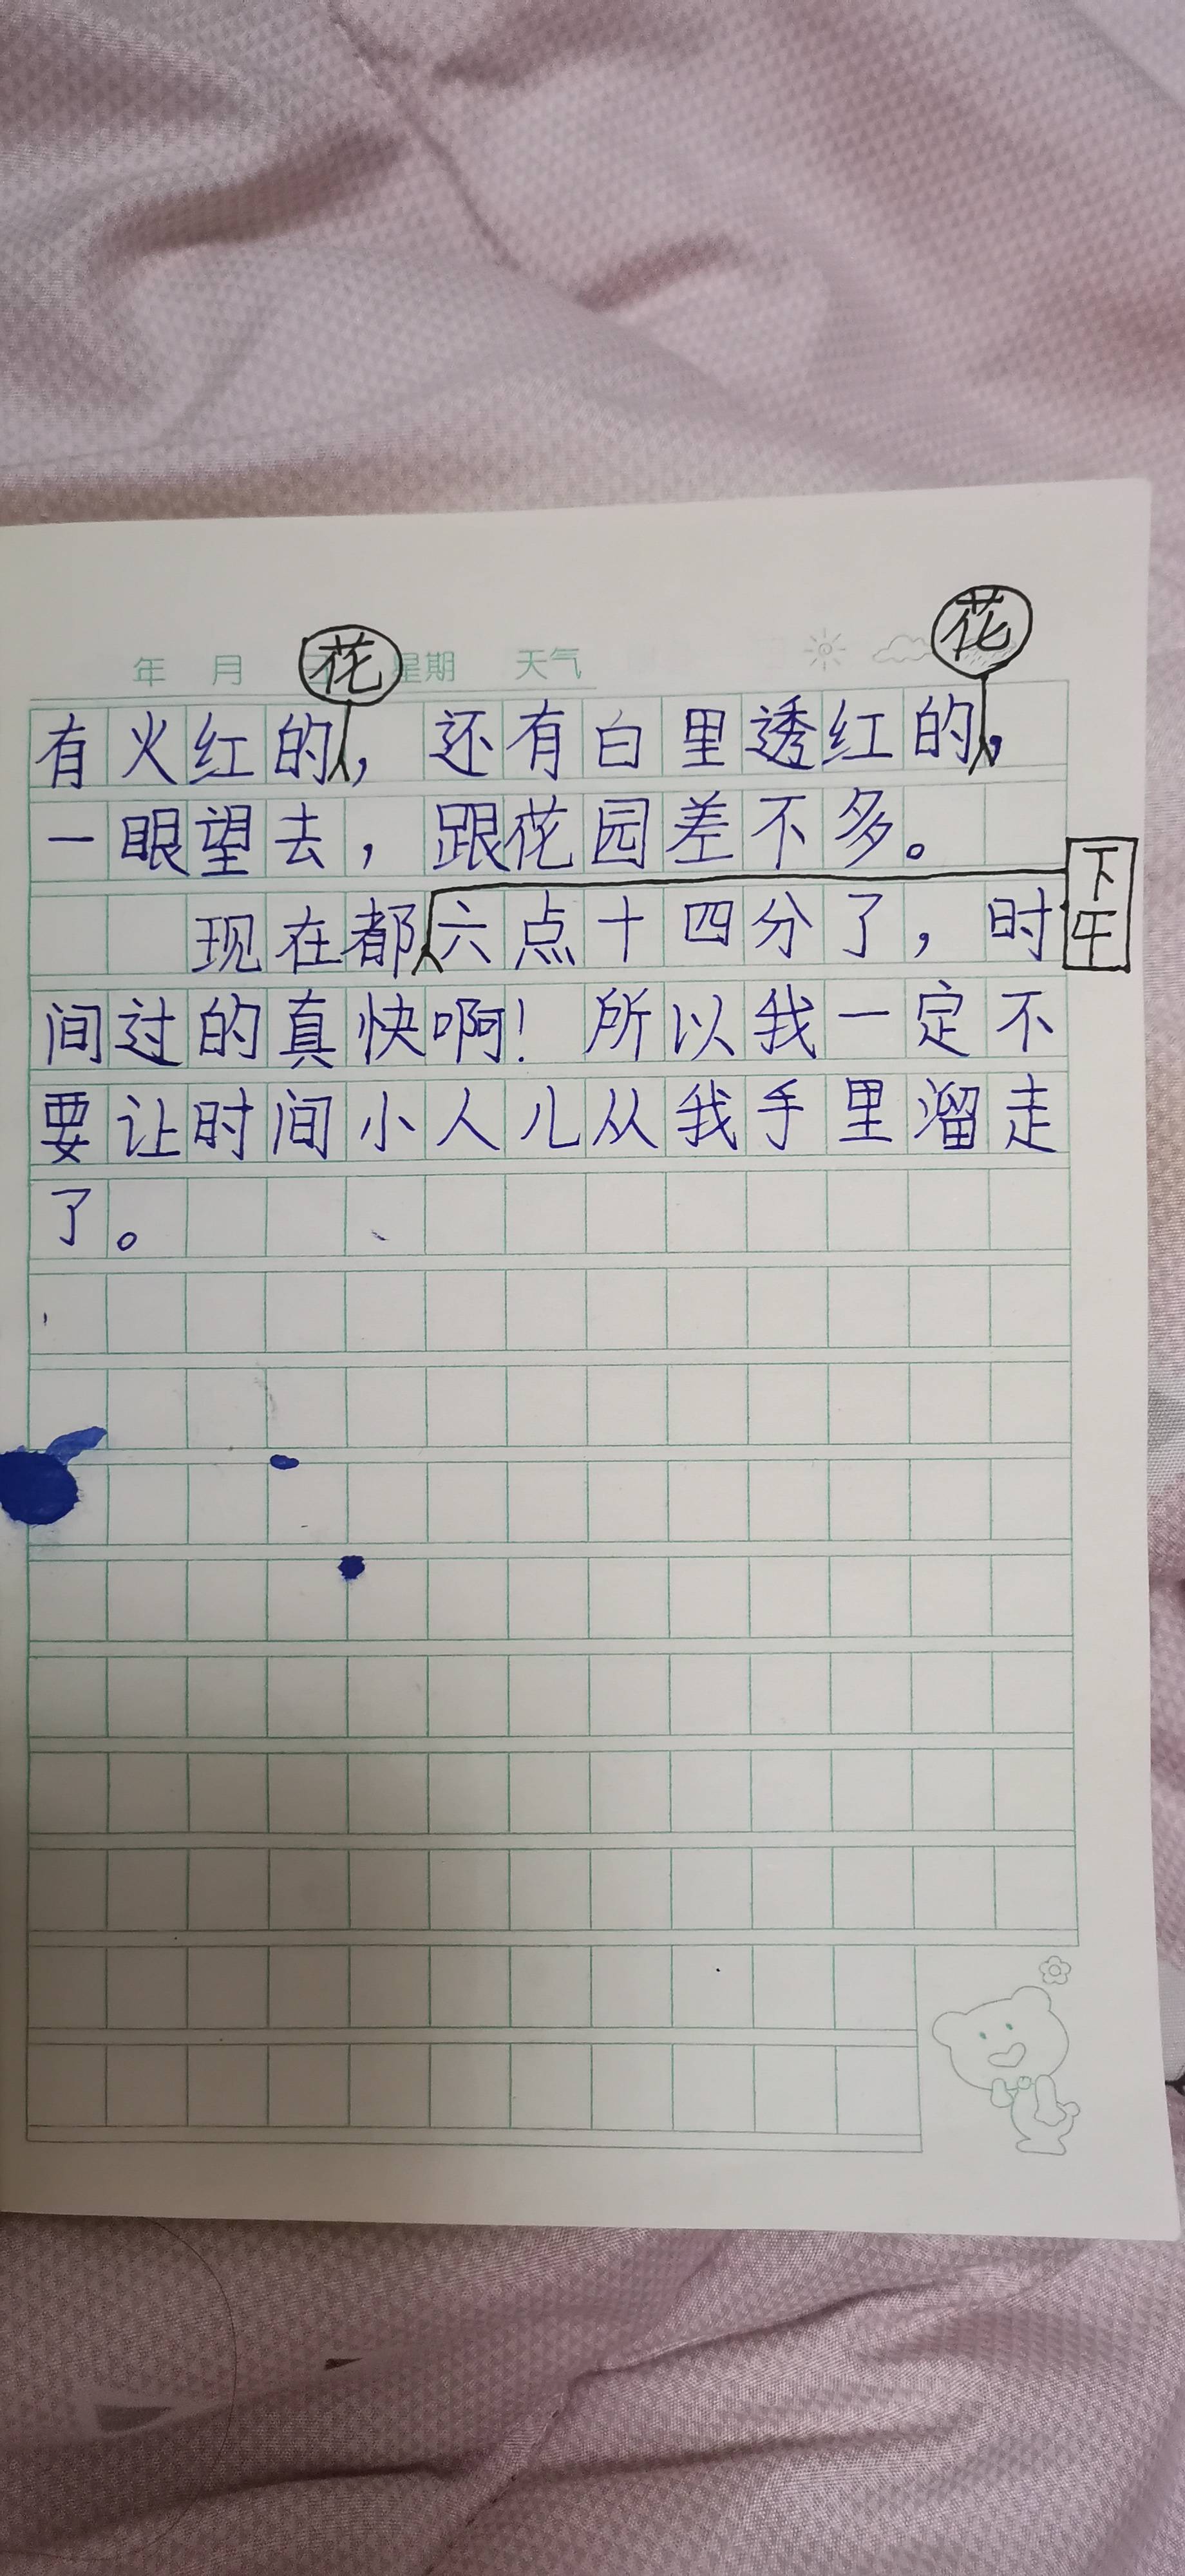 花 花
年 月 星期 天气
有火红的，还有白里透红的，
一眼望去，跟花园差不多。
下午
现在都六点十四分了，时
间过的真快啊！所以我一定不
要让时间小人儿从我手里溜走
了。